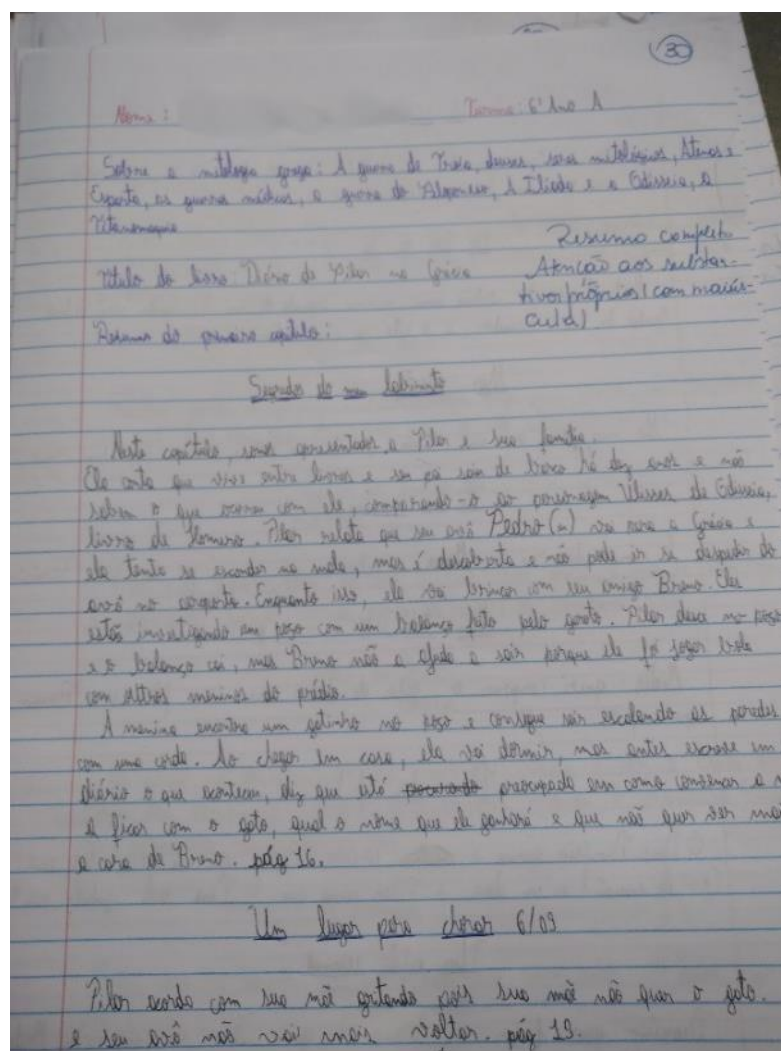 30
Nome: Turma: 6º Ano A
Sobre a mitologia grega: A guerra de Troia, deuses, seres mitológicos, Atenas e
Esparta, as guerras médicas, a guerra do A Ilíada e a Odisseia, a
Titanomaquia
Resumo completo
Título do livro: Diário de Pilar na Grécia
Atenção aos substan-
tivos próprios (com maiús-
cula)
Resumo do primeiro capítulo:
Segredos do meu labirinto
Neste capítulo, somos apresentados a Pilar e sua família.
Ela conta que vive entre livros e seu pai saiu de barco há dez anos e não
sabem o que ocorreu com ele, comparando-o ao personagem Ulisses de Odisseia,
livro de Homero. Pilar relata que seu avô Pedro (m) vai para a Grécia e
ela tenta se esconder na mala, mas é descoberta e não pode ir se despedir do
avô no aeroporto. Enquanto isso, ela vai brincar com seu amigo Breno. Eles
estão investigando um poço com um balanço feito pelo garoto. Pilar desce no poço
e o balanço cai, mas Breno não a ajuda a sair porque ele foi jogar bola
com outros meninos do prédio.
A menina encontra um gatinho no poço e consegue sair escalando as paredes
com uma corda. Ao chegar em casa, ela vai dormir, mas antes escreve em
diário o que aconteceu, diz que está preocupada em como convencer a
a ficar com o gato, qual o nome que ele ganhará e que não quer ver mais
a cara de Breno. pág 16.
Um lugar para chorar 6/09
Pilar acorda com sua mãe gritando pois sua mãe não quer o gato.
e seu avô não vai mais voltar. pág 19.